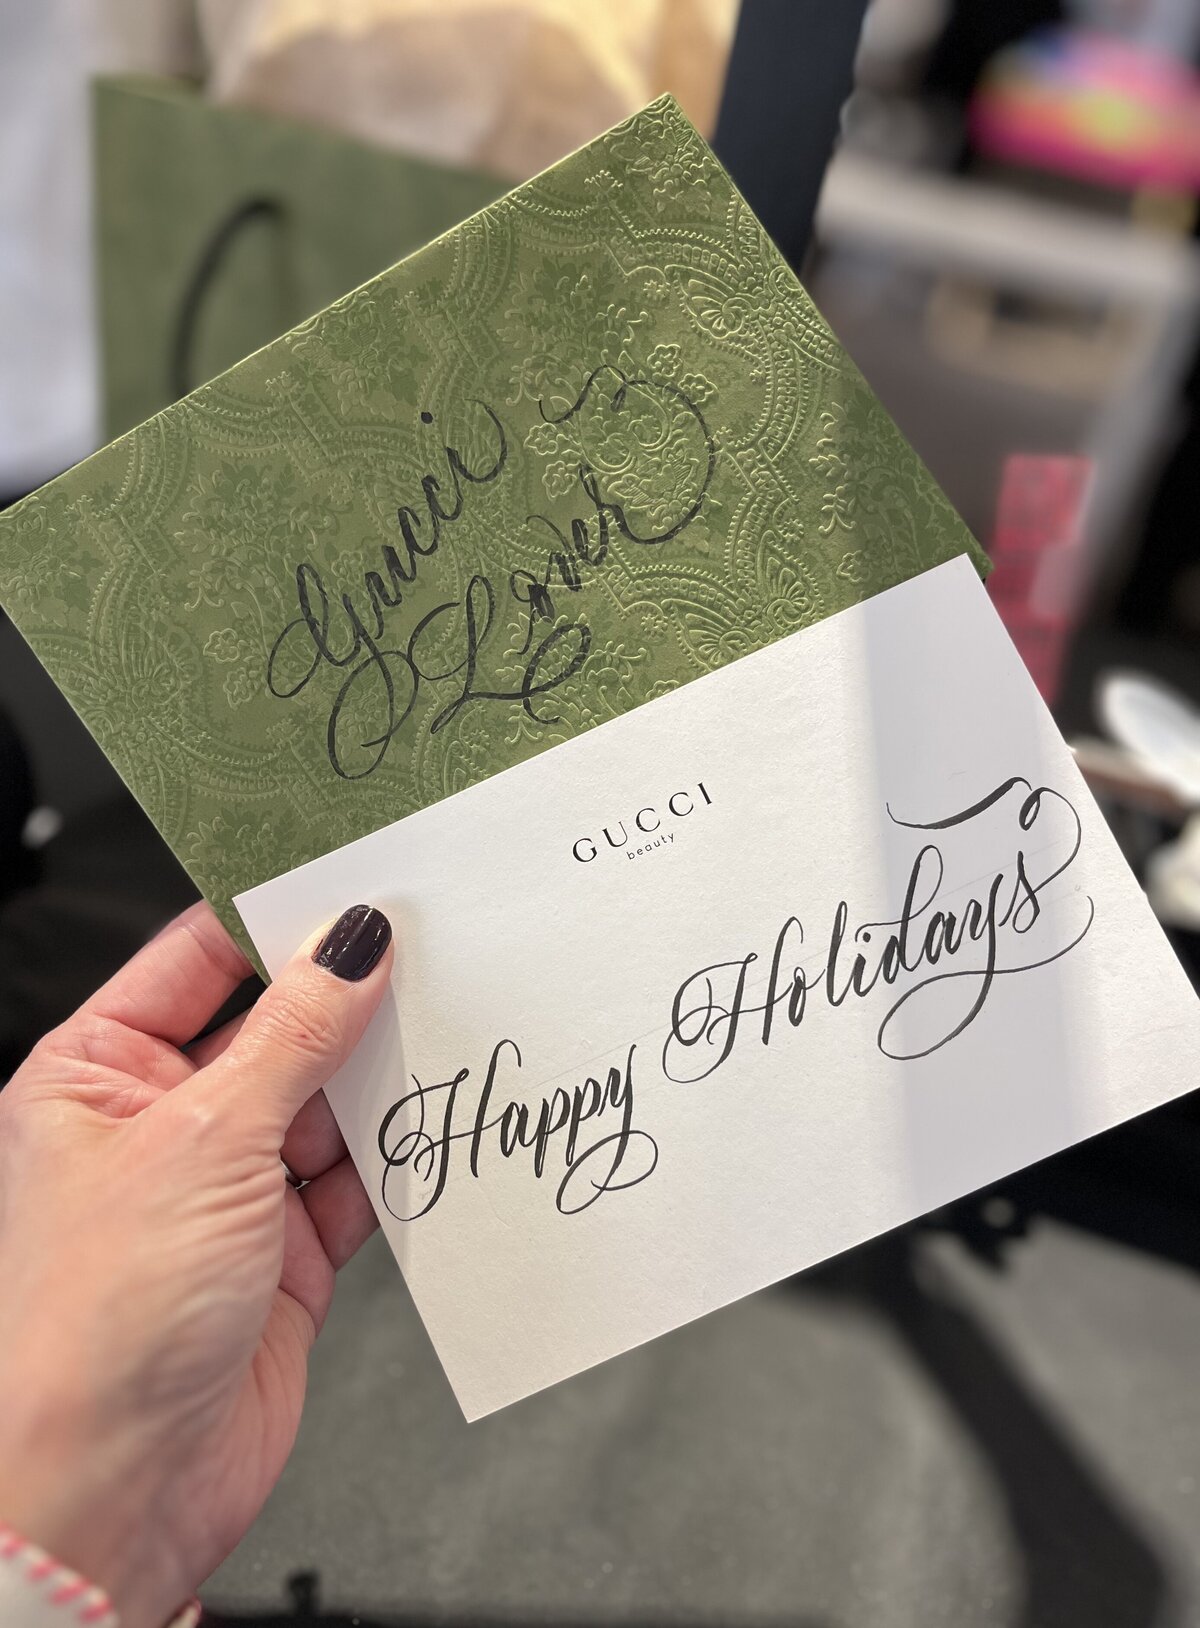 Gucci
Lover
GUCCI
beauty
Happy Holidays